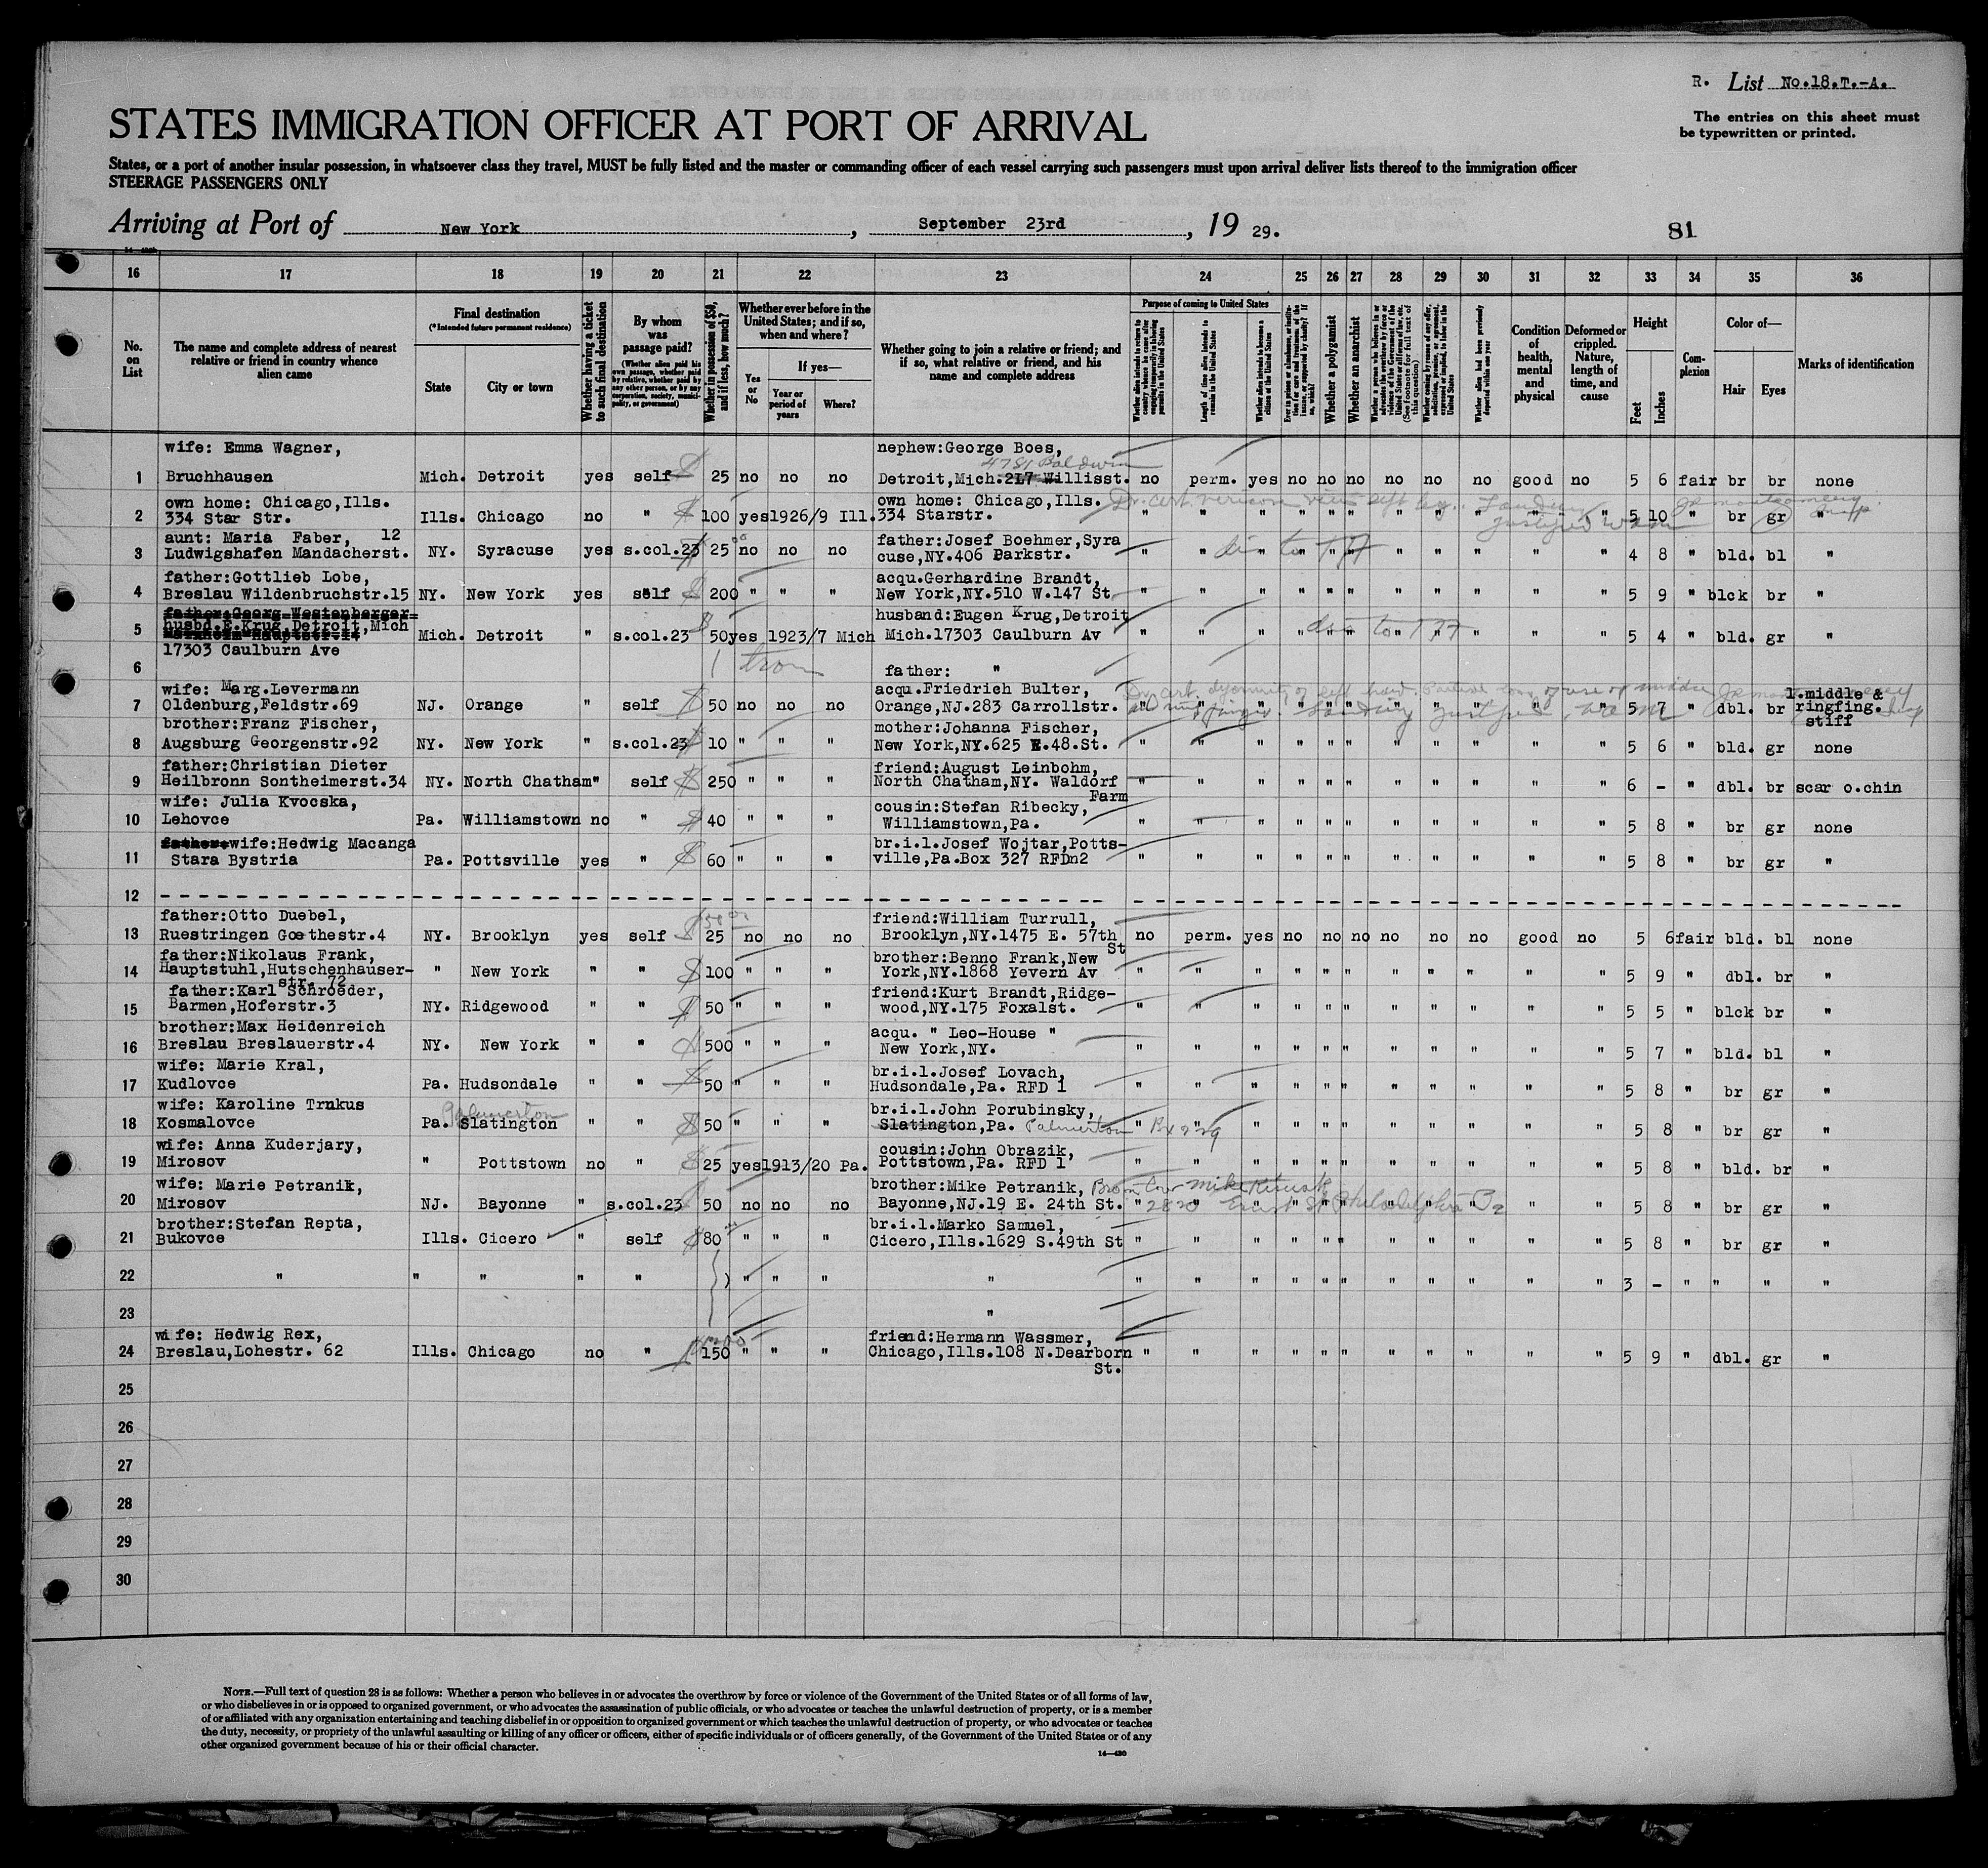 R. List No.18.T.-A.
STATES IMMIGRATION OFFICER AT PORT OF ARRIVAL
The entries on this sheet must
be typewritten or printed.
States, or a port of another insular possession, in whatsoever class they travel, MUST be fully listed and the master or commanding officer of each vessel carrying such passengers must upon arrival deliver lists thereof to the immigration officer
STEERAGE PASSENGERS ONLY
Arriving at Port of New York, September 23rd, 19 29.
81
16 17 18 19 20 21 22 23 24 25 26 27 28 29 30 31 32 33 34 35 36
No. on List
The name and complete address of nearest relative or friend in country whence alien came
Final destination
(*Intended future permanent residence)
State
City or town
Whether having a ticket to such final destination
By whom was passage paid?
(Whether alien paid his own passage, whether paid by relative, whether paid by any other person, or by any corporation, society, municipality, or government)
Whether in possession of $50, and if less, how much?
Whether ever before in the United States; and if so, when and where?
Yes or No
If yes—
Year or period of years
Where?
Whether going to join a relative or friend; and if so, what relative or friend, and his name and complete address
Purpose of coming to United States
Whether alien intends to return to country whence he came after engaging temporarily in laboring pursuits in the United States
Length of time alien intends to remain in the United States
Whether alien intends to become a citizen of the United States
Whether a polygamist
Whether an anarchist
Whether alien had been previously deported within one year
Condition of health, mental and physical
Deformed or crippled. Nature, length of time, and cause
Height
Feet
Inches
Complexion
Color of—
Hair
Eyes
Marks of identification
wife: Emma Wagner, nephew:George Boes,
4781 Baldwin
1 Bruchhausen Mich. Detroit yes self $ 25 no no no Detroit,Mich.217 Willisst. no perm. yes no no no no no no good no 5 6 fair br br none
own home: Chicago,Ills. own home: Chicago,Ills.
2 334 Star Str. Ills. Chicago no " $ 100 yes 1926/9 Ill. 334 Starstr. " " " " " " " " " " " 5 10 " br gr "
aunt: Maria Faber, 12 father:Josef Boehmer,Syra
3 Ludwigshafen Mandacherst. NY. Syracuse yes s.col.23 $ 25 no no no cuse,NY.406 Parkstr. " " " " " " " " " " " 4 8 " bld. bl "
father:Gottlieb Lobe, acqu.Gerhardine Brandt,
4 Breslau Wildenbruchstr.15 NY. New York yes self $ 200 " " " New York,NY.510 W.147 St. " " " " " " " " " " " 5 9 " blck br "
father:Georg Westenberger husband:Eugen Krug,Detroit
husbd.E.Krug,Detroit,Mich
5 Mich. Detroit " s.col.23 $ 50 yes 1923/7 Mich Mich.17303 Caulburn Av " " " " " " " " " " " 5 4 " bld. gr "
17303 Caulburn Ave
6 father: "
wife: Marg.Levermann acqu.Friedrich Bulter, l.middle &
7 Oldenburg,Feldstr.69 NJ. Orange " self $ 50 no no no Orange,NJ.283 Carrollstr. " " " " " " " " " " " 5 7 " dbl. br ringfing.
stiff
brother:Franz Fischer, mother:Johanna Fischer,
8 Augsburg Georgenstr.92 NY. New York " s.col.23 $ 10 " " " New York,NY.625 E.48.St. " " " " " " " " " " " 5 6 " bld. gr none
father:Christian Dieter friend:August Leinbohm,
9 Heilbronn Sontheimerst.34 NY. North Chatham " self $ 250 " " " North Chatham,NY. Waldorf " " " " " " " " " " " 6 - " dbl. br scar o.chin
Farm
wife: Julia Kvocska, cousin:Stefan Ribecky,
10 Lehovce Pa. Williamstown no " $ 40 " " " Williamstown,Pa. " " " " " " " " " " " 5 8 " br gr none
father: wife:Hedwig Macanga br.i.l.Josef Wojtar,Potts-
11 Stara Bystria Pa. Pottsville yes " $ 60 " " " ville,Pa.Box 327 RFDn2 " " " " " " " " " " " 5 8 " br gr "
12
father:Otto Duebel, friend:William Turrull,
13 Ruestringen Goethestr.4 NY. Brooklyn yes self $ 25 no no no Brooklyn,NY.1475 E. 57th no perm. yes no no no no no no good no 5 6 fair bld. bl none
St
father:Nikolaus Frank, brother:Benno Frank,New
14 Hauptstuhl,Hutschenhauser- " New York " " $ 100 " " " York,NY.1868 Yevern Av " " " " " " " " " " " 5 9 " dbl. br "
str. 72
father:Karl Schroeder, friend:Kurt Brandt,Ridge-
15 Barmen,Hoferstr.3 NY. Ridgewood " " $ 50 " " " wood,NY.175 Foxalst. " " " " " " " " " " " 5 5 " blck br "
brother:Max Heidenreich acqu. " Leo-House "
16 Breslau Breslauerstr.4 NY. New York " " $ 500 " " " New York,NY. " " " " " " " " " " " 5 7 " bld. bl "
wife: Marie Kral, br.i.l.Josef Lovach,
17 Kudlovce Pa. Hudsondale " " $ 50 " " " Hudsondale,Pa. RFD 1 " " " " " " " " " " " 5 8 " br gr "
wife: Karoline Trnkus Palmerton br.i.l.John Porubinsky,
18 Kosmalovce Pa. Slatington " " $ 50 " " " Slatington,Pa. Palmerton Bx 229 " " " " " " " " " " 5 8 " br gr "
wife: Anna Kuderjary, cousin:John Obrazik,
19 Mirosov " Pottstown no " $ 25 yes 1913/20 Pa. Pottstown,Pa. RFD 1 " " " " " " " " " " " 5 8 " bld. br "
wife: Marie Petranik, brother:Mike Petranik,
20 Mirosov NJ. Bayonne " s.col.23 50 no no no Bayonne,NJ.19 E. 24th St. " " " " " " " " " 5 8 " br gr "
Philadelphia
brother:Stefan Repta, br.i.l.Marko Samuel,
21 Bukovce Ills. Cicero " self $ 80 " " " Cicero,Ills.1629 S.49th St " " " " " " " " " " " 5 8 " br gr "
22 " " " " " " " " " " " " " " " " " " " " 3 - " " " "
23 "
wife: Hedwig Rex, friend:Hermann Wassmer,
24 Breslau,Lohestr. 62 Ills. Chicago no " 150 " " " Chicago,Ills.108 N.Dearborn " " " " " " " " " " " 5 9 " dbl. gr "
St.
25
26
27
28
29
30
NOTE.—Full text of question 28 is as follows: Whether a person who believes in or advocates the overthrow by force or violence of the Government of the United States or of all forms of law,
or who disbelieves in or is opposed to organized government, or who advocates the assassination of public officials, or who advocates or teaches the unlawful destruction of property, or is a member
of or affiliated with any organization entertaining and teaching disbelief in or opposition to organized government or which teaches the unlawful destruction of property, or who advocates or teaches
the duty, necessity, or propriety of the unlawful assaulting or killing of any officer or officers, either of specific individuals or of officers generally, of the Government of the United States or of any
other organized government because of his or their official character.
14—430